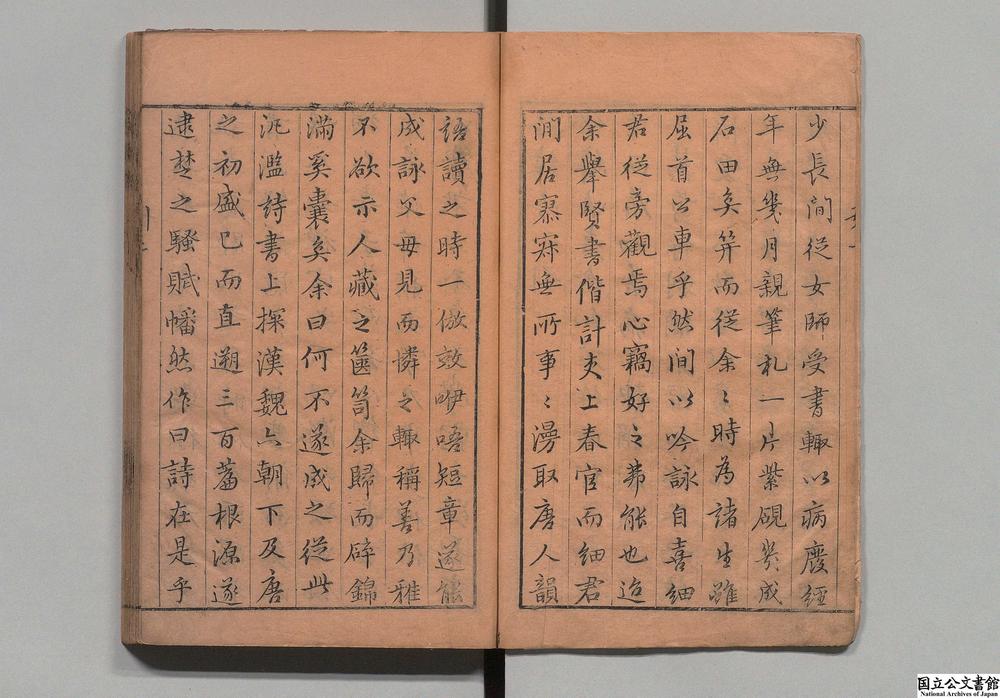 少長間從女師受書輒以病廢經
年無幾月親筆札一片紫硯幾成
石田矣笄而從余〻時為諸生雖
屈首公車乎然間以吟詠自喜細
君從旁觀焉心竊好之弗能也迨
余舉賢書偕計吏上春官而細君
閒居寡寐無所事〻漫取唐人韻
語讀之時一倣效咿唔短章遂能
成詠父母見而憐之輒稱善乃雅
不欲示人藏之篋笥余歸而辟錦
滿奚囊矣余曰何不遂成之從此
汎濫詩書上探漢魏六朝下及唐
之初盛已而直遡三百蓄根源遂
逮楚之騷賦幡然作曰詩在是乎
国立公文書館
National Archives of Japan